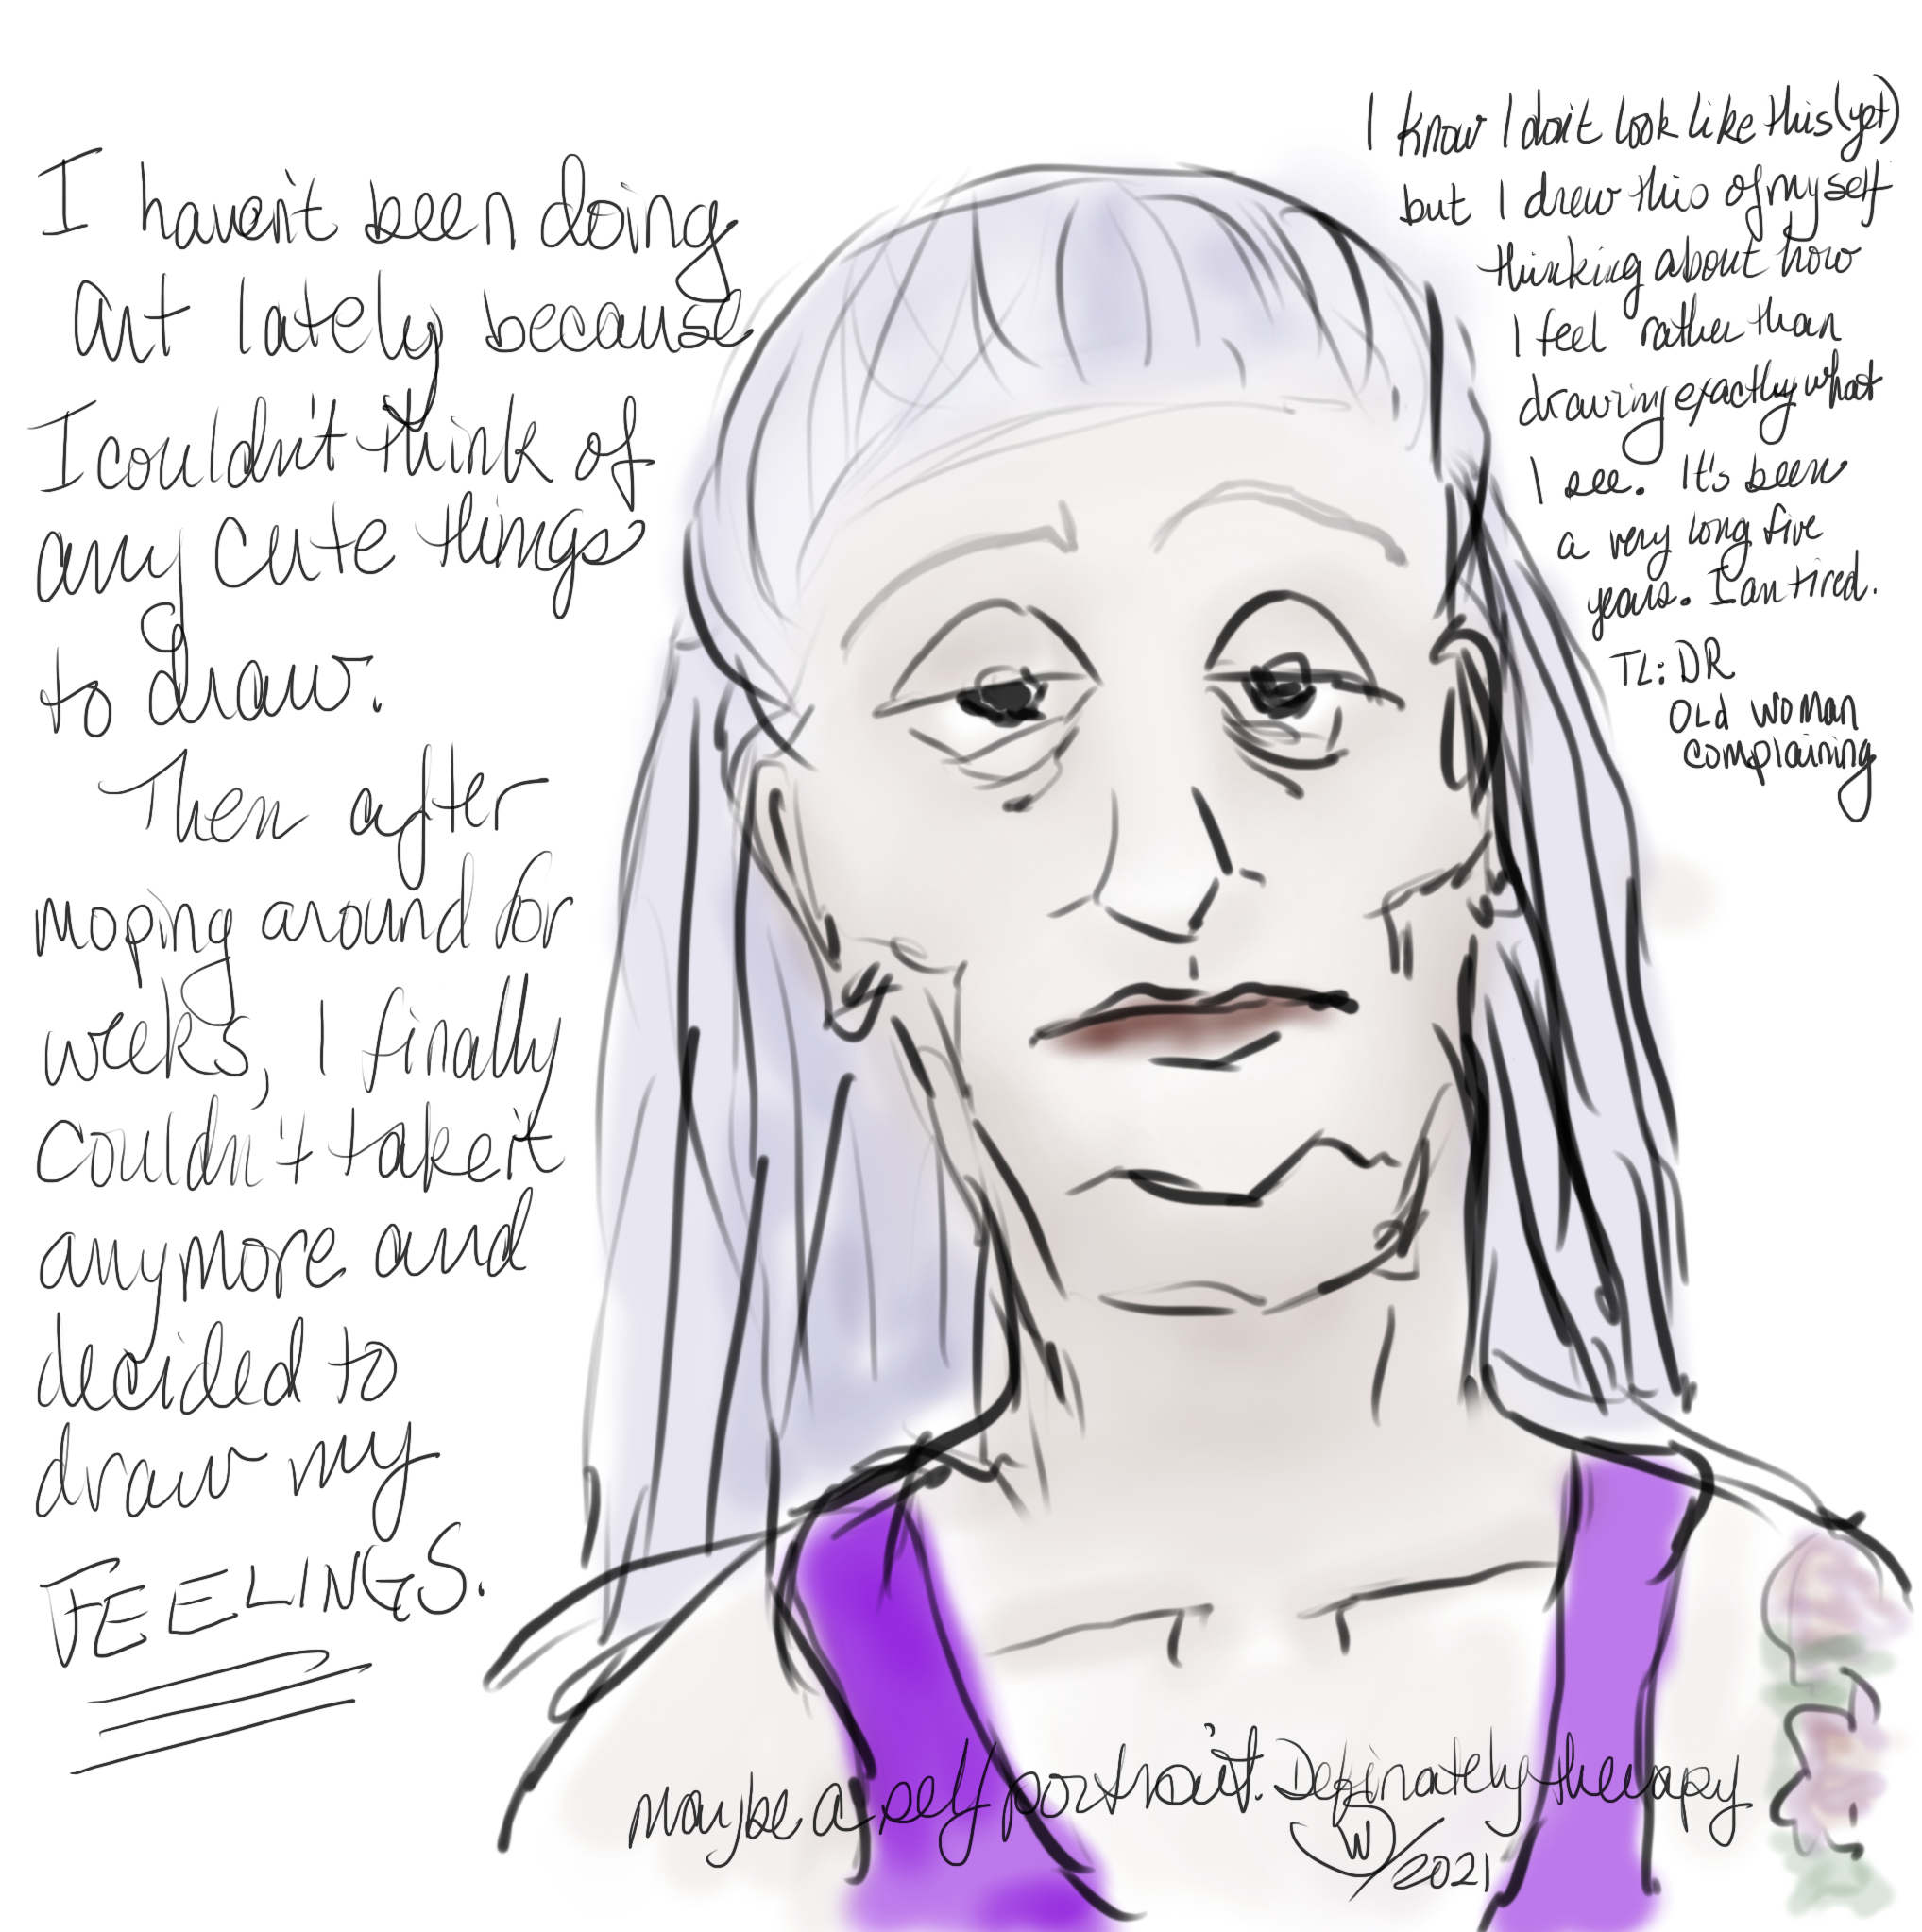 I haven't been doing
art lately because
I couldn't think of
any cute things
to draw.
Then after
moping around for
weeks, I finally
couldn't take it
anymore and
decided to
draw my
FEELINGS.
I know I don't look like this (yet)
but I drew this of myself
thinking about how
I feel rather than
drawing exactly what
I see. It's been
a very long five
years. I am tired.
TL:DR
Old woman
complaining
maybe a self portrait. Definately therapy
W/2021